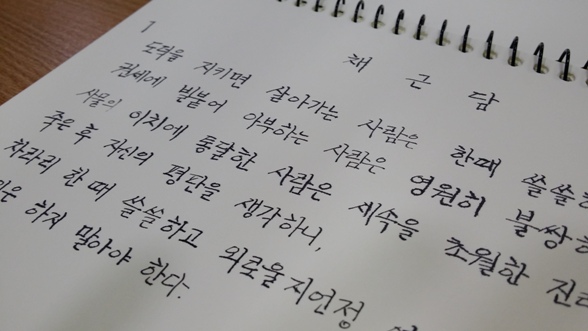 1
채근담
도덕을 지키면 살아가는 사람은 한때 쓸쓸
권세에 빌붙어 아부하는 사람은 영원히 불쌍
사물의 이치에 통달한 사람은 세속을 초월한 진
죽은 후 자신의 평판을 생각하니,
차라리 한 때 쓸쓸하고 외로울지언정
하지 말아야 한다.